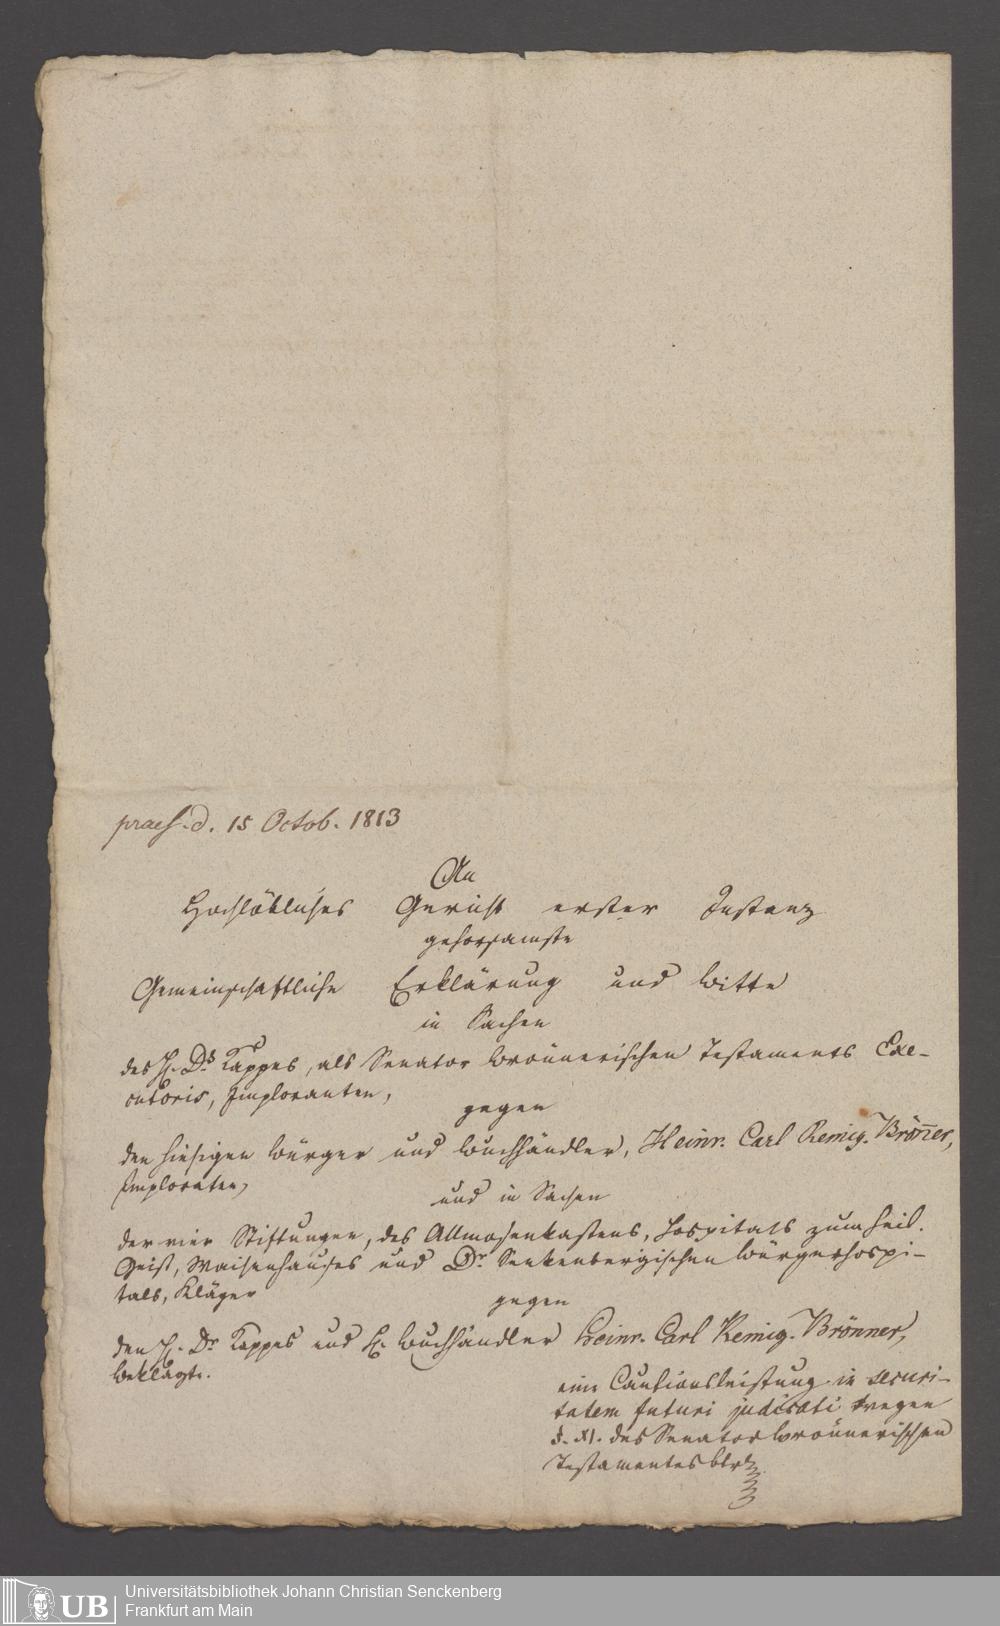 praes. d. 15 Octob. 1813
An
Hochlöbliches Gericht erster Instanz
gehorsamste
Gemeinschaftliche Erklärung und Bitte
in Sachen
des H. Dr. Kappes, als Senator Brönnerischen Testaments Exe-
cutoris, Imploranten,
gegen
den hiesigen Bürger und Buchhändler, Heinr. Carl Remig. Brönner,
Imploraten,
und in Sachen
der vier Stiftungen, des Allmosenkastens, Hospitals zum heil.
Geist, Waisenhauses und Dr. Senkenbergischen Bürgerhospi-
tals, Kläger
gegen
den H. Dr. Kappes und H. Buchhändler Heinr. Carl Remig. Brönner,
Beklagte.
eine Cautionsleistung in securi-
tatem futuri judicati wegen
§. XI. des Senator Brönnerischen
Testamentes btr.
UB
Universitätsbibliothek Johann Christian Senckenberg
Frankfurt am Main